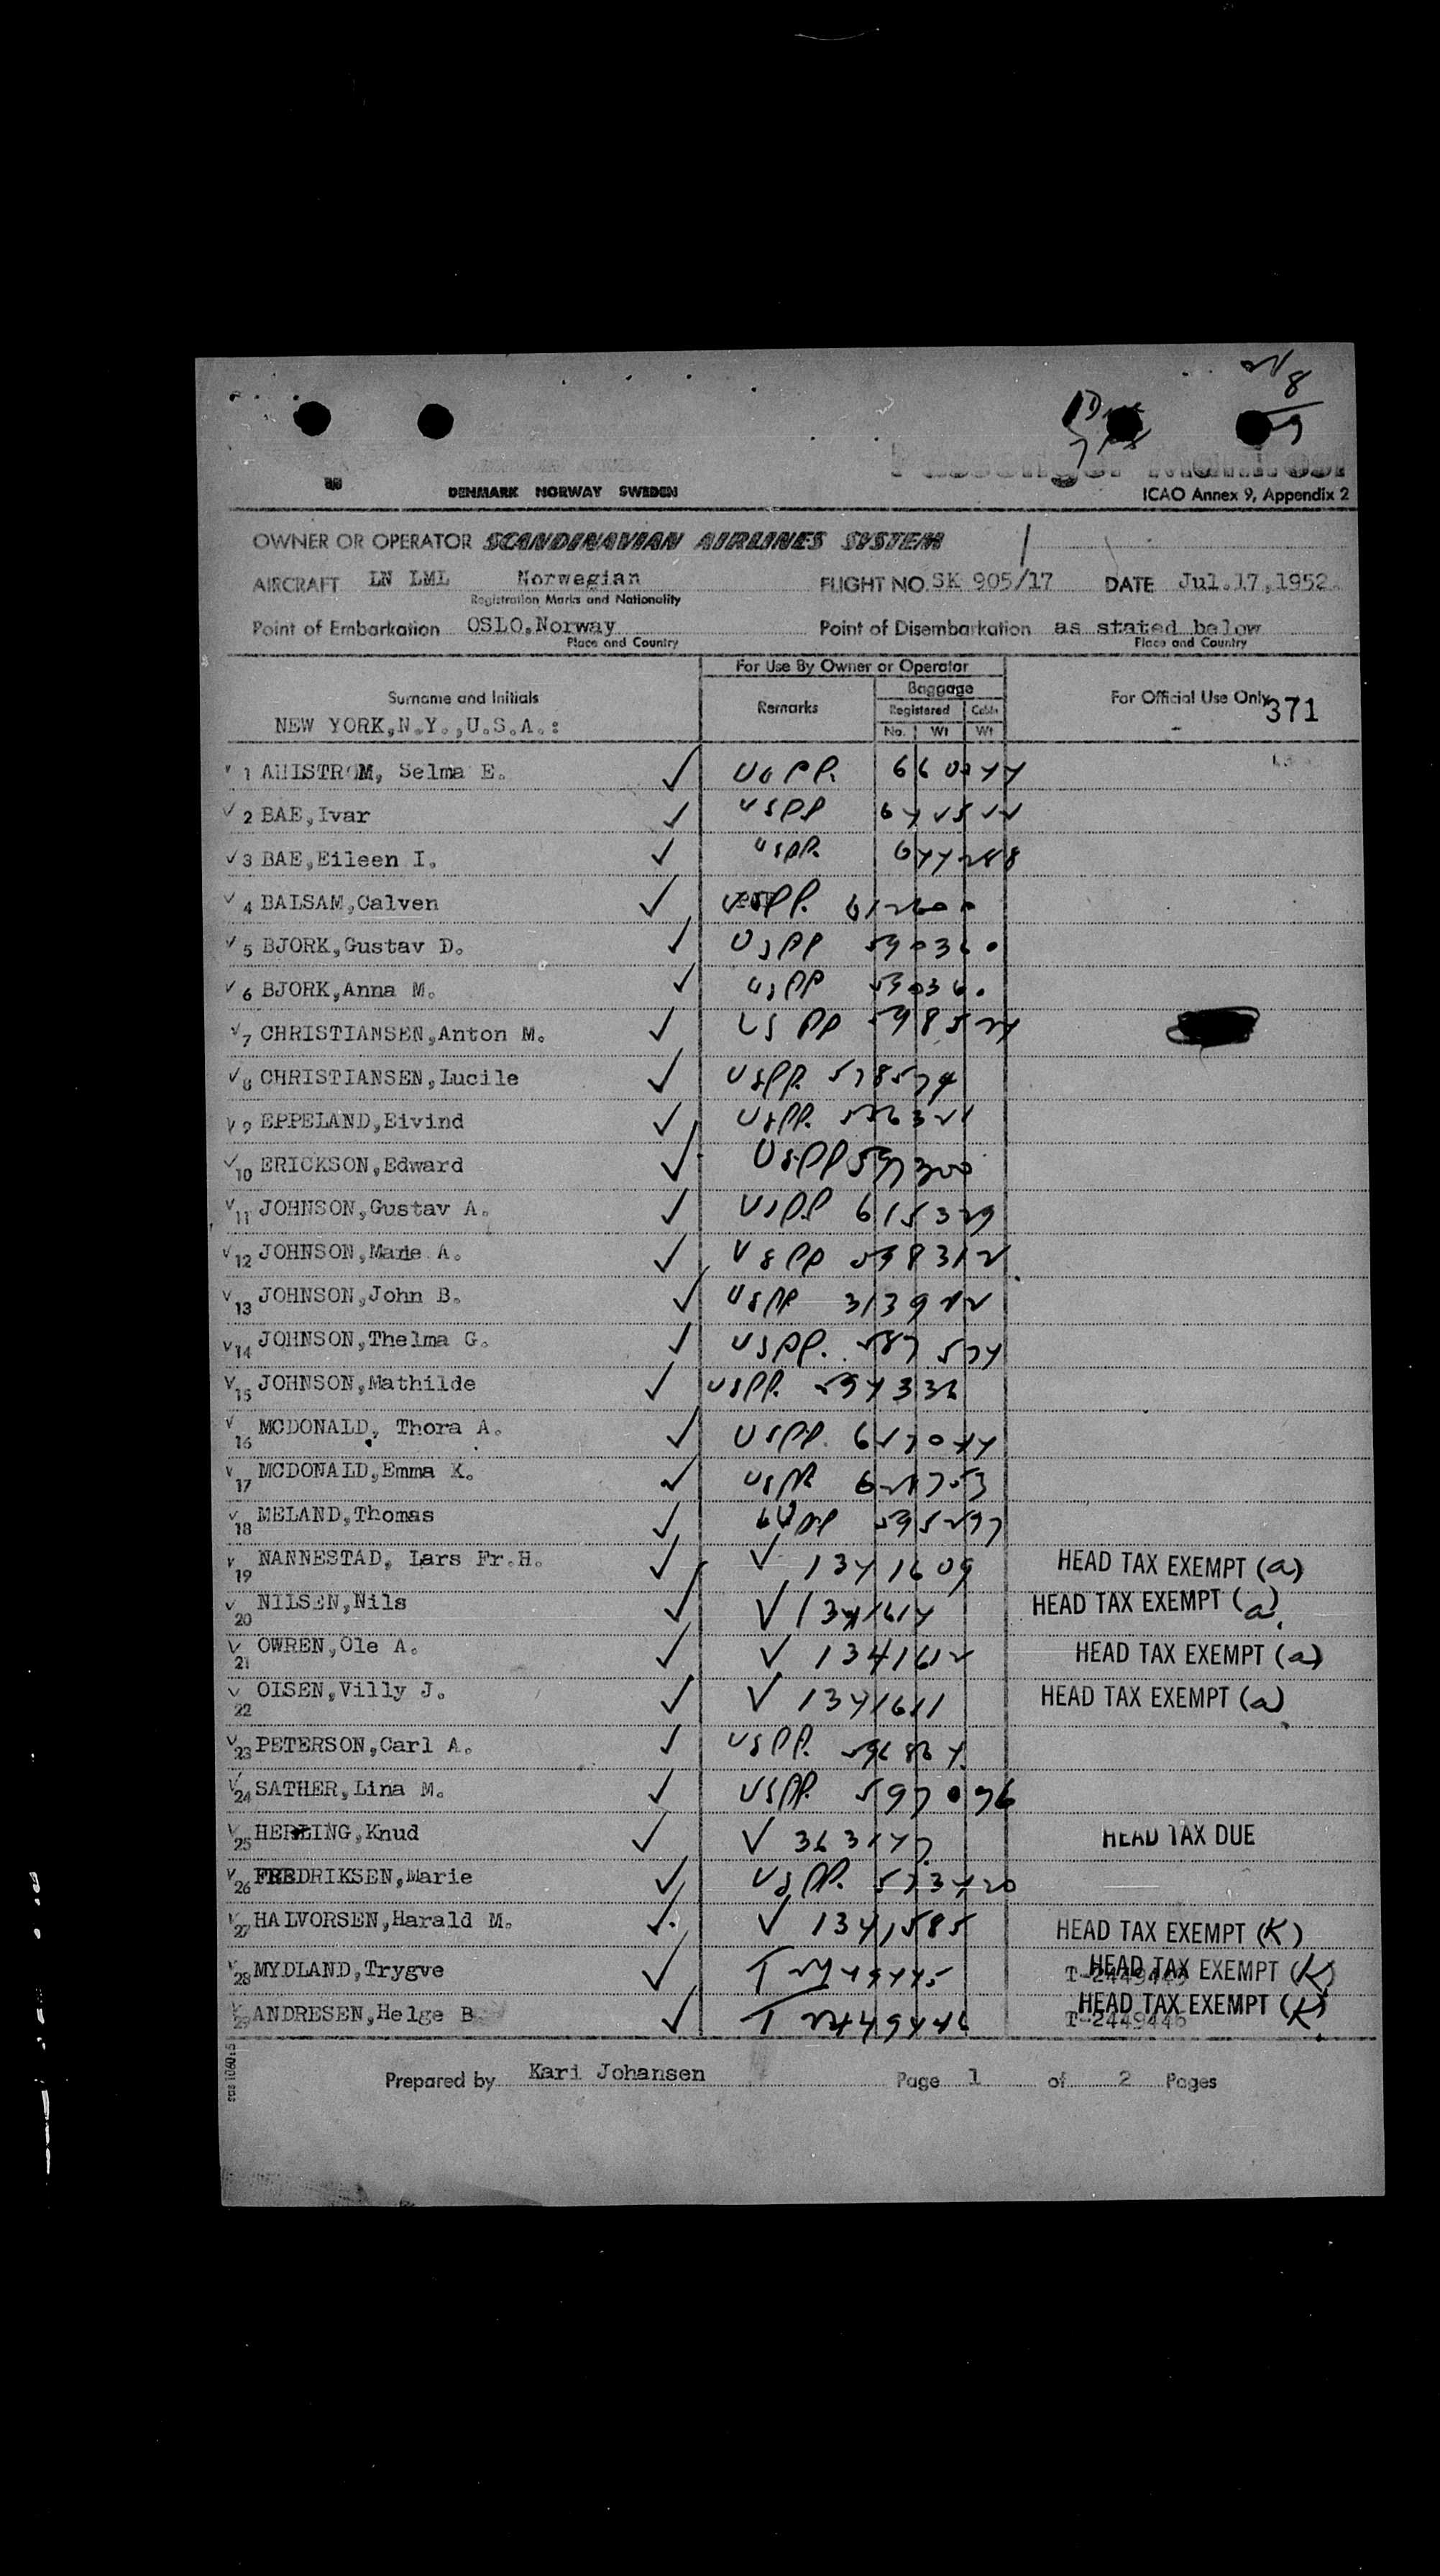 Passenger Manifest
DENMARK NORWAY SWEDEN
ICAO Annex 9, Appendix 2
OWNER OR OPERATOR SCANDINAVIAN AIRLINES SYSTEM
AIRCRAFT LN LML Norwegian FLIGHT NO. SK 905/17 DATE Jul.17,1952.
Registration Marks and Nationality
Point of Embarkation OSLO,Norway Point of Disembarkation as stated below
Place and Country Place and Country
For Use By Owner or Operator
Surname and Initials Remarks Baggage For Official Use Only 371
Registered Cabin
NEW YORK,N.Y.,U.S.A.: No. Wt Wt
✓ 1 AHISTROM, Selma E. ✓
✓ 2 BAE,Ivar ✓ USPP
✓ 3 BAE,Eileen I. ✓ USPP.
✓ 4 BALSAM,Calven ✓ USPP.
✓ 5 BJORK,Gustav D. ✓ USPP 590360
✓ 6 BJORK,Anna M. ✓ USPP 590360
✓ 7 CHRISTIANSEN,Anton M. ✓ USPP
✓ 8 CHRISTIANSEN,Lucile ✓ USPP. 578574
✓ 9 EPPELAND,Eivind ✓ USPP.
✓ 10 ERICKSON,Edward ✓ USPP 597300
✓ 11 JOHNSON,Gustav A. ✓ USPP 615329
✓ 12 JOHNSON,Marie A. ✓ USPP 598312
✓ 13 JOHNSON,John B. ✓ USPP
✓ 14 JOHNSON,Thelma G. ✓ USPP. 587574
✓ 15 JOHNSON,Mathilde ✓ USPP. 594336
✓ 16 MCDONALD, Thora A. ✓ USPP.
✓ 17 MCDONALD,Emma K. ✓ USPP
✓ 18 MELAND,Thomas ✓ USPP 595297
✓ 19 NANNESTAD, Lars Fr.H. ✓ V 1341609 HEAD TAX EXEMPT (a)
✓ 20 NILSEN,Nils ✓ V 1341614 HEAD TAX EXEMPT (a)
✓ 21 OWREN,Ole A. ✓ V 1341612 HEAD TAX EXEMPT (a)
✓ 22 OISEN,Villy J. ✓ V 1341611 HEAD TAX EXEMPT (a)
✓ 23 PETERSON,Carl A. ✓ USPP.
✓ 24 SATHER,Lina M. ✓ USPP. 597096
✓ 25 HERLING,Knud ✓ V 363147 HEAD TAX DUE
✓ 26 FREDRIKSEN,Marie ✓ USPP. 573420
✓ 27 HALVORSEN,Harald M. ✓ V 1341585 HEAD TAX EXEMPT (K)
✓ 28 MYDLAND,Trygve ✓ T 2449445 T-2449445 HEAD TAX EXEMPT (K)
✓ 29 ANDRESEN,Helge B ✓ T 2449446 T-2449446 HEAD TAX EXEMPT (K)
Prepared by Kari Johansen Page 1 of 2 Pages